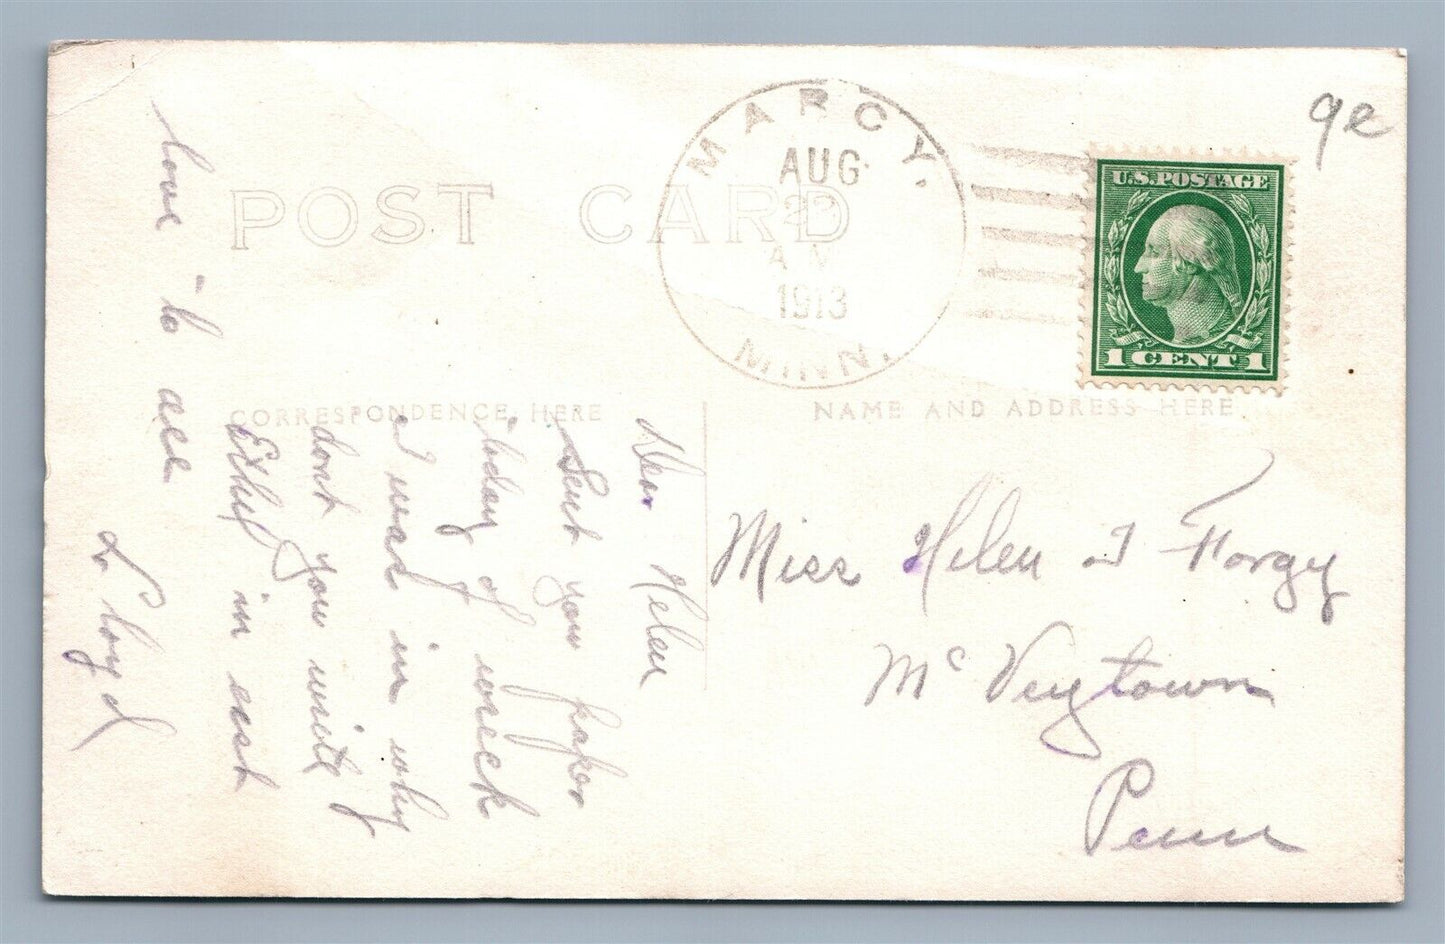 MARCY.
AUG
A.M.
1913
MINN.
9e
U.S. POSTAGE
1 CENT 1
POST CARD
CORRESPONDENCE HERE
NAME AND ADDRESS HERE
Dear Helen
Sent you paper
today of wreck
I was in why
dont you write
Ethel in east
love to all
Lloyd
Miss Helen I Forgy
Mc Veytown
Penn